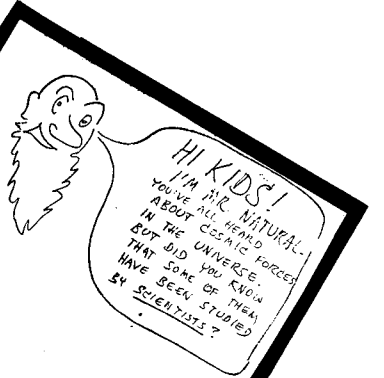 HI KIDS!
I'M MR. NATURAL.
YOU'VE ALL HEARD
ABOUT COSMIC FORCES
IN THE UNIVERSE.
BUT DID YOU KNOW
THAT SOME OF THEM
HAVE BEEN STUDIED
BY SCIENTISTS?